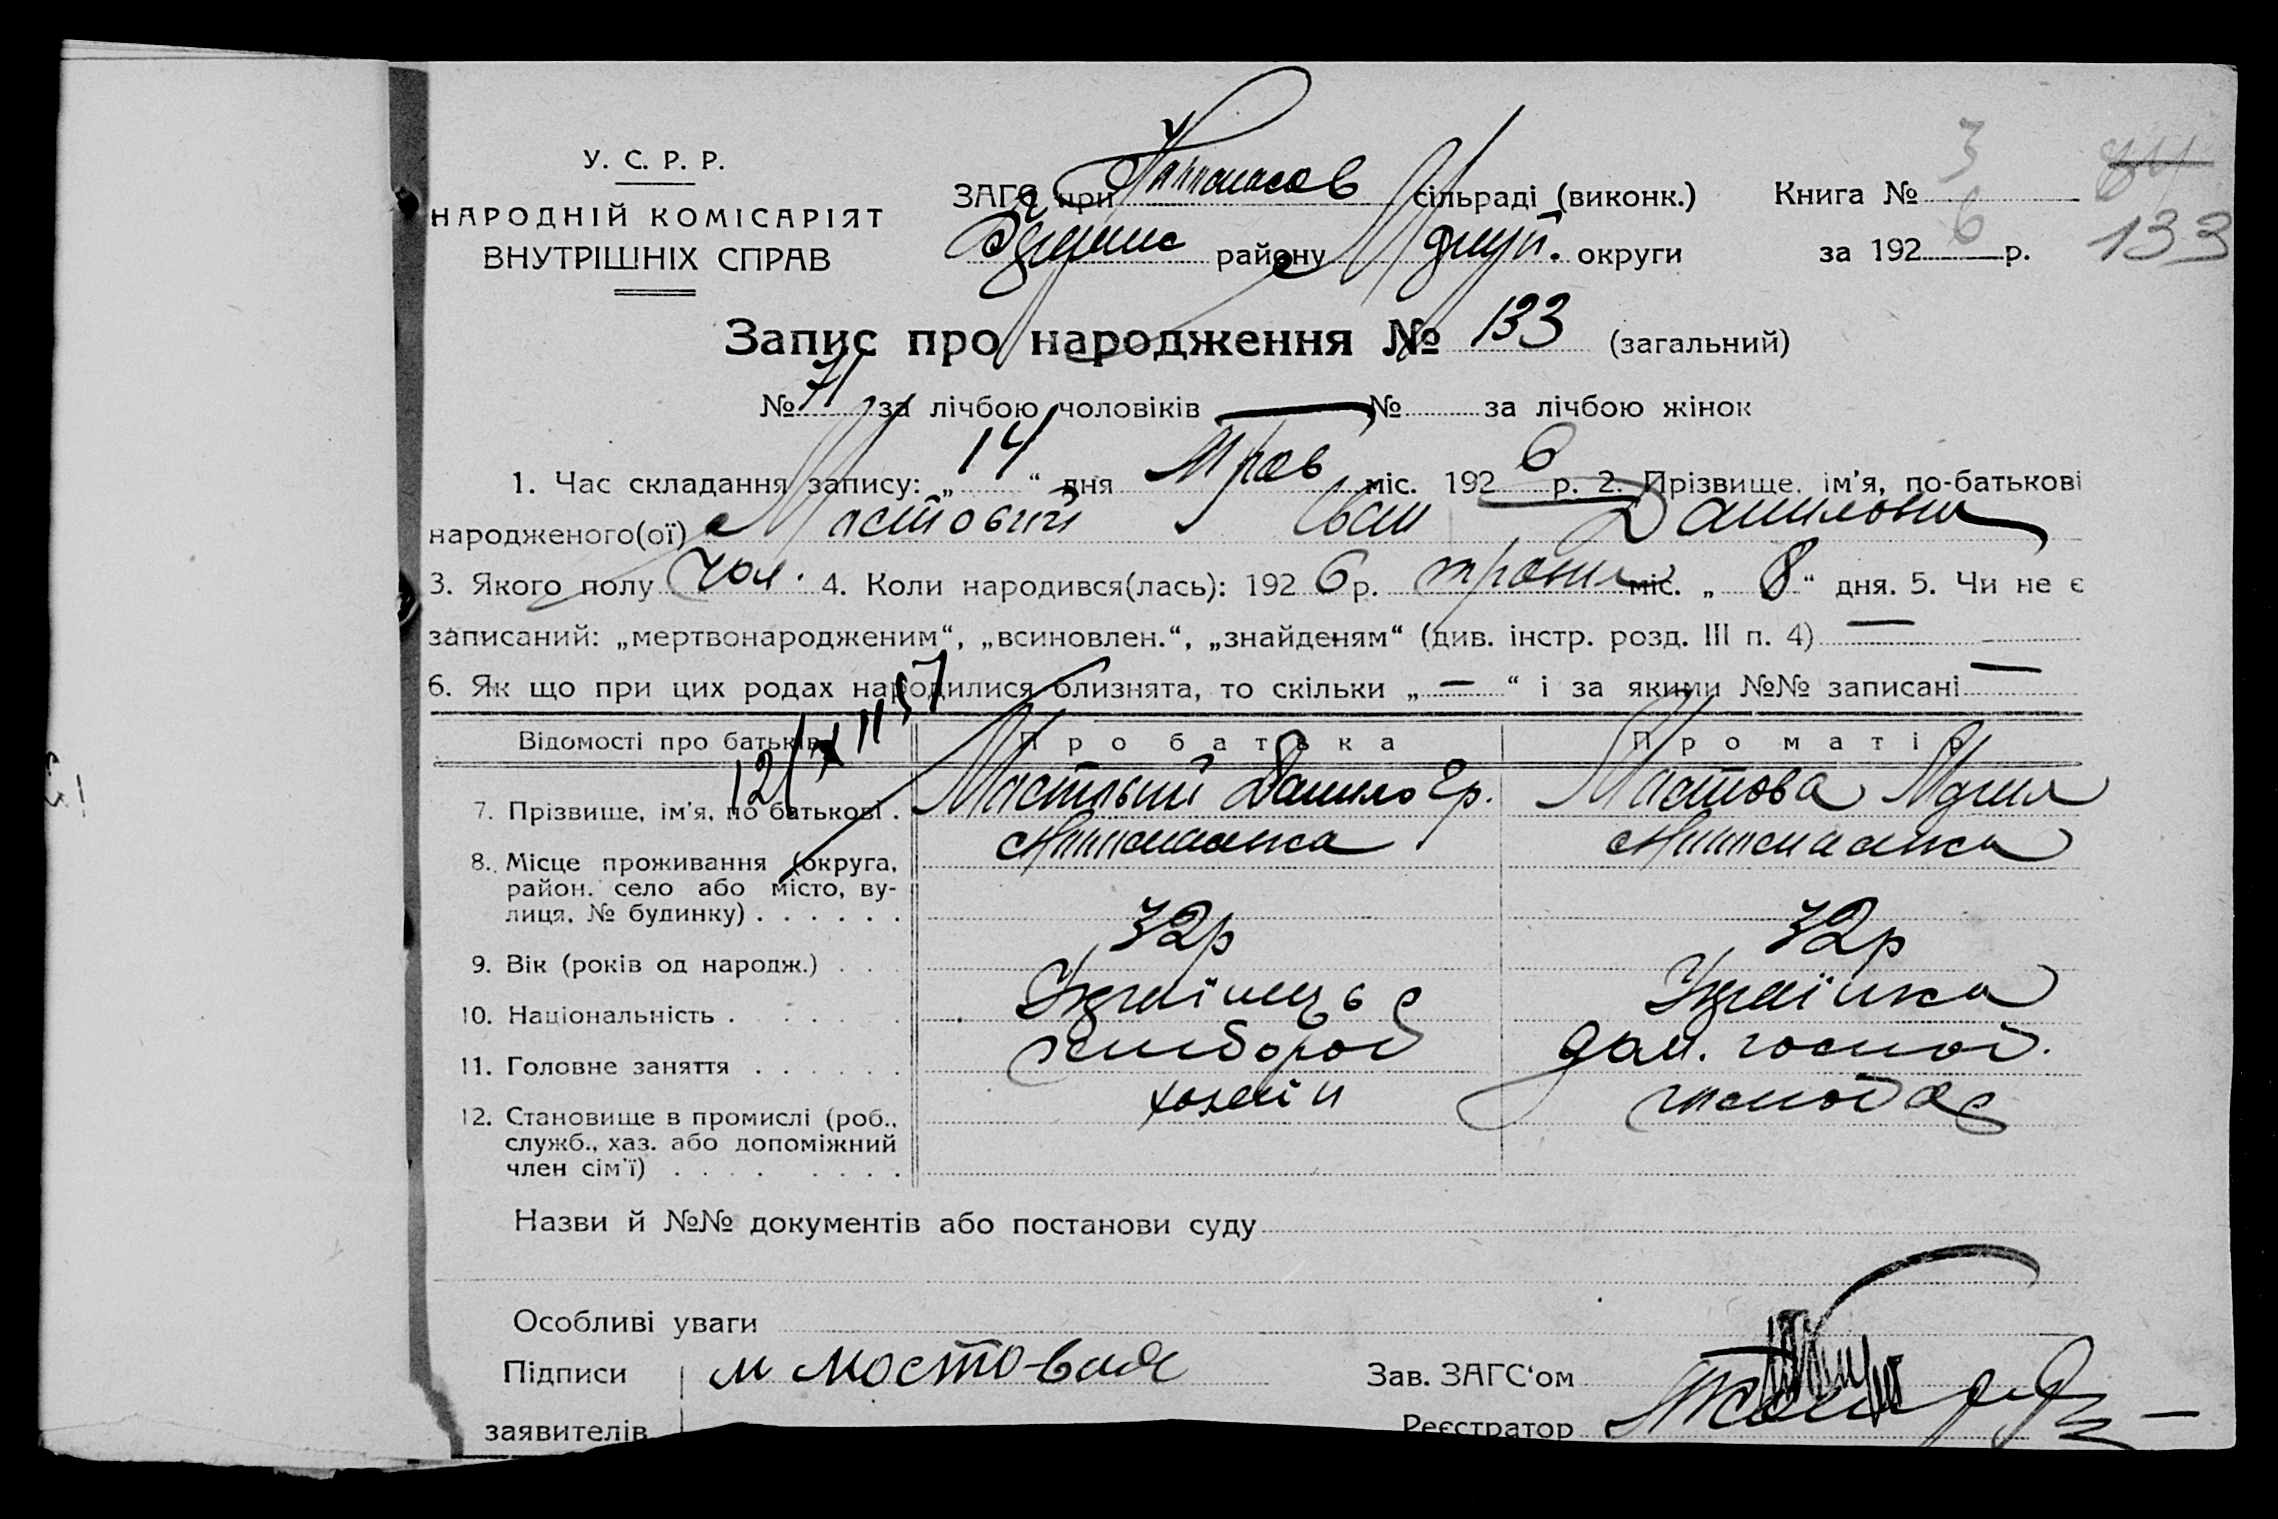 У. С. Р. Р.
НАРОДНІЙ КОМІСАРІЯТ
ВНУТРІШНІХ СПРАВ
ЗАГС при сільраді (виконк.)
району округи
Книга № 3
за 1926 р.
84
133
Запис про народження № 133 (загальний)
№ 71 за лічбою чоловіків — № за лічбою жінок
1. Час складання запису: „14“ дня Трав міс. 1926 р. 2. Прізвище, ім'я, по-батькові
народженого(ої) Мастовий Іван Данилович
3. Якого полу чол. 4. Коли народився(лась): 1926 р. травня міс. „8“ дня. 5. Чи не є
записаний: „мертвонародженим“, „всиновлен.“, „знайденям“ (див. інстр. розд. III п. 4) —
6. Як що при цих родах народилися близнята, то скільки „—“ і за якими №№ записані —
12/XII 57
Відомості про батьків Про батька Про матір
7. Прізвище, ім'я, по батькові . Мастовий Данило Гр. Мастова Мария
8. Місце проживання (округа,
район, село або місто, ву-
лиця, № будинку) . . . . . .
9. Вік (років од народж.) . . . 32р 32р
10. Національність . . . . . Українець Українка
11. Головне заняття . . . . . . хлібороб дом. господ.
12. Становище в промислі (роб., хазяїн господар
служб., хаз. або допоміжний
член сім'ї) . . . . . . . .
Назви й №№ документів або постанови суду
Особливі уваги
Підписи м мостовая
заявителів
Зав. ЗАГС'ом
Реєстратор